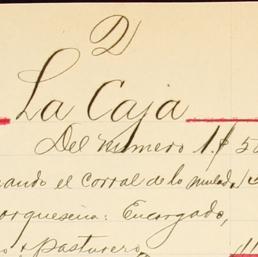 2
La Caja
Del número 1. $ 5
ando el corral de lo
orqueseña: Encargado,
o y Pasturero